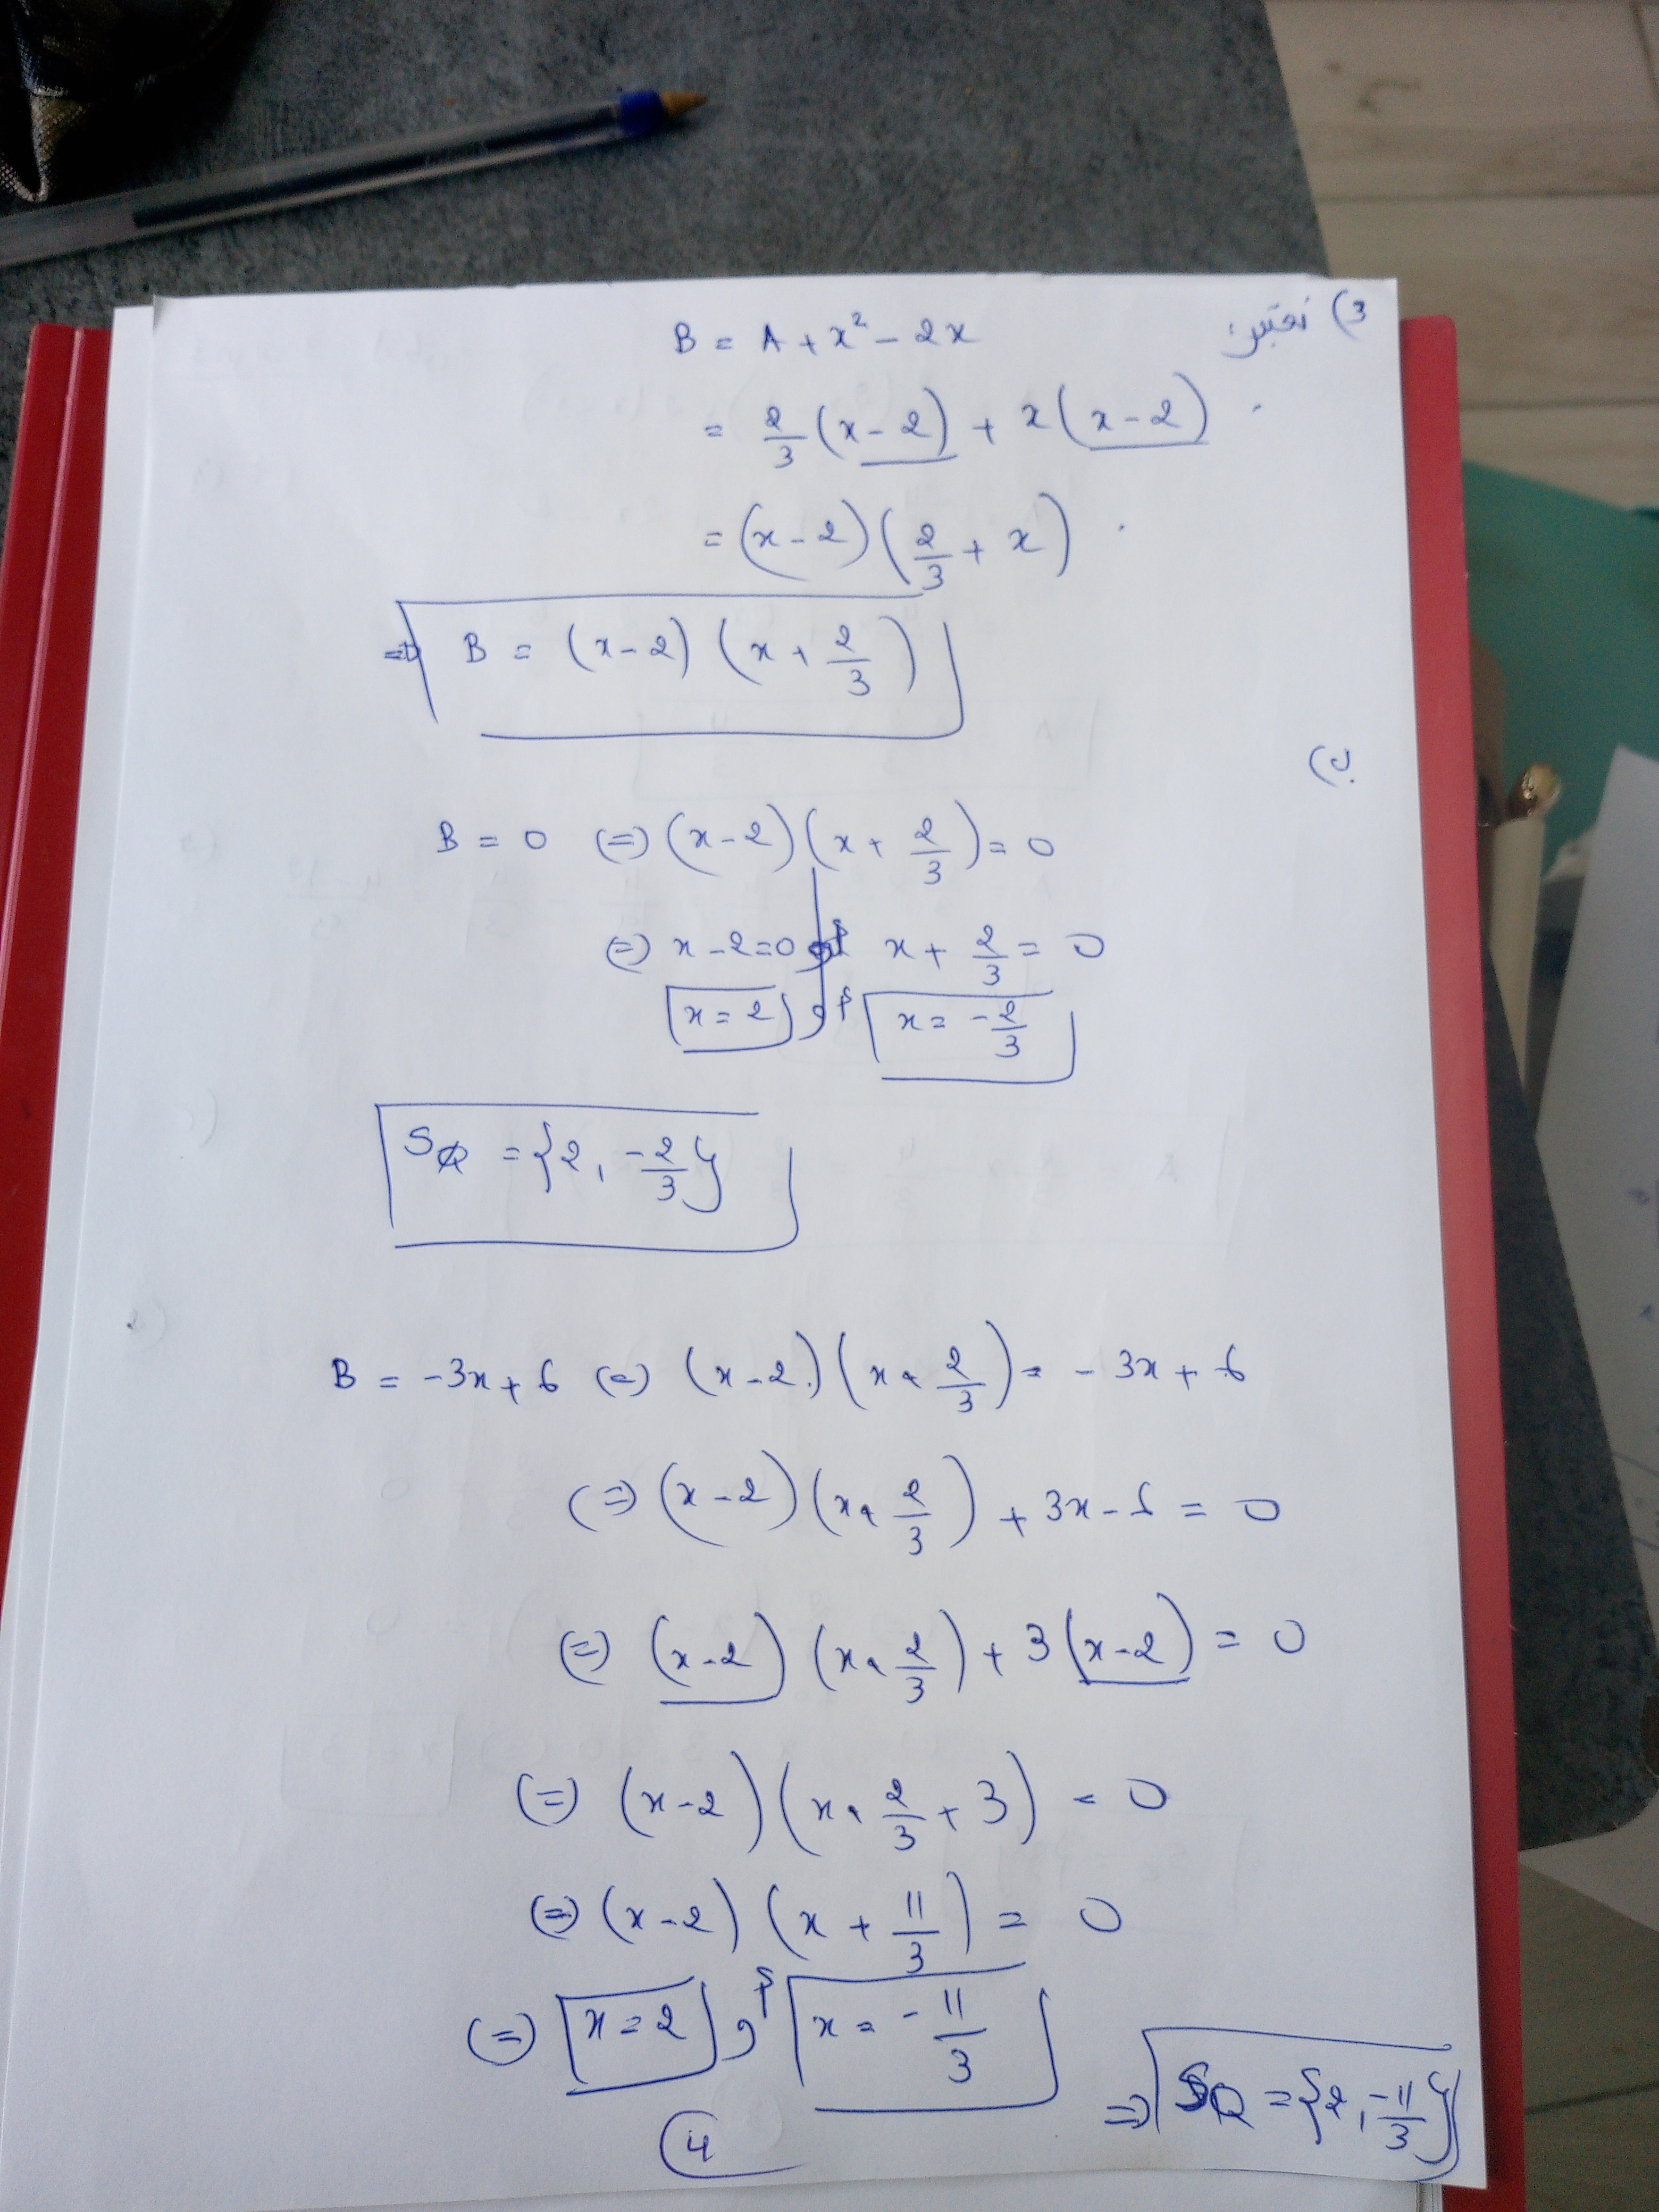 3) نعتبر: B = A + x² - 2x
= 2/3 (x - 2) + x(x - 2)
= (x - 2)(2/3 + x)
⇒ B = (x - 2)(x + 2/3)
ب)
B = 0 (=) (x - 2)(x + 2/3) = 0
(=) x - 2 = 0 أو x + 2/3 = 0
x = 2 أو x = -2/3
SQ = {2, -2/3}
B = -3x + 6 (=) (x - 2)(x + 2/3) = -3x + 6
(=) (x - 2)(x + 2/3) + 3x - 6 = 0
(=) (x - 2)(x + 2/3) + 3(x - 2) = 0
(=) (x - 2)(x + 2/3 + 3) = 0
(=) (x - 2)(x + 11/3) = 0
(=) x = 2 أو x = -11/3 ⇒ SQ = {2, -11/3}
4